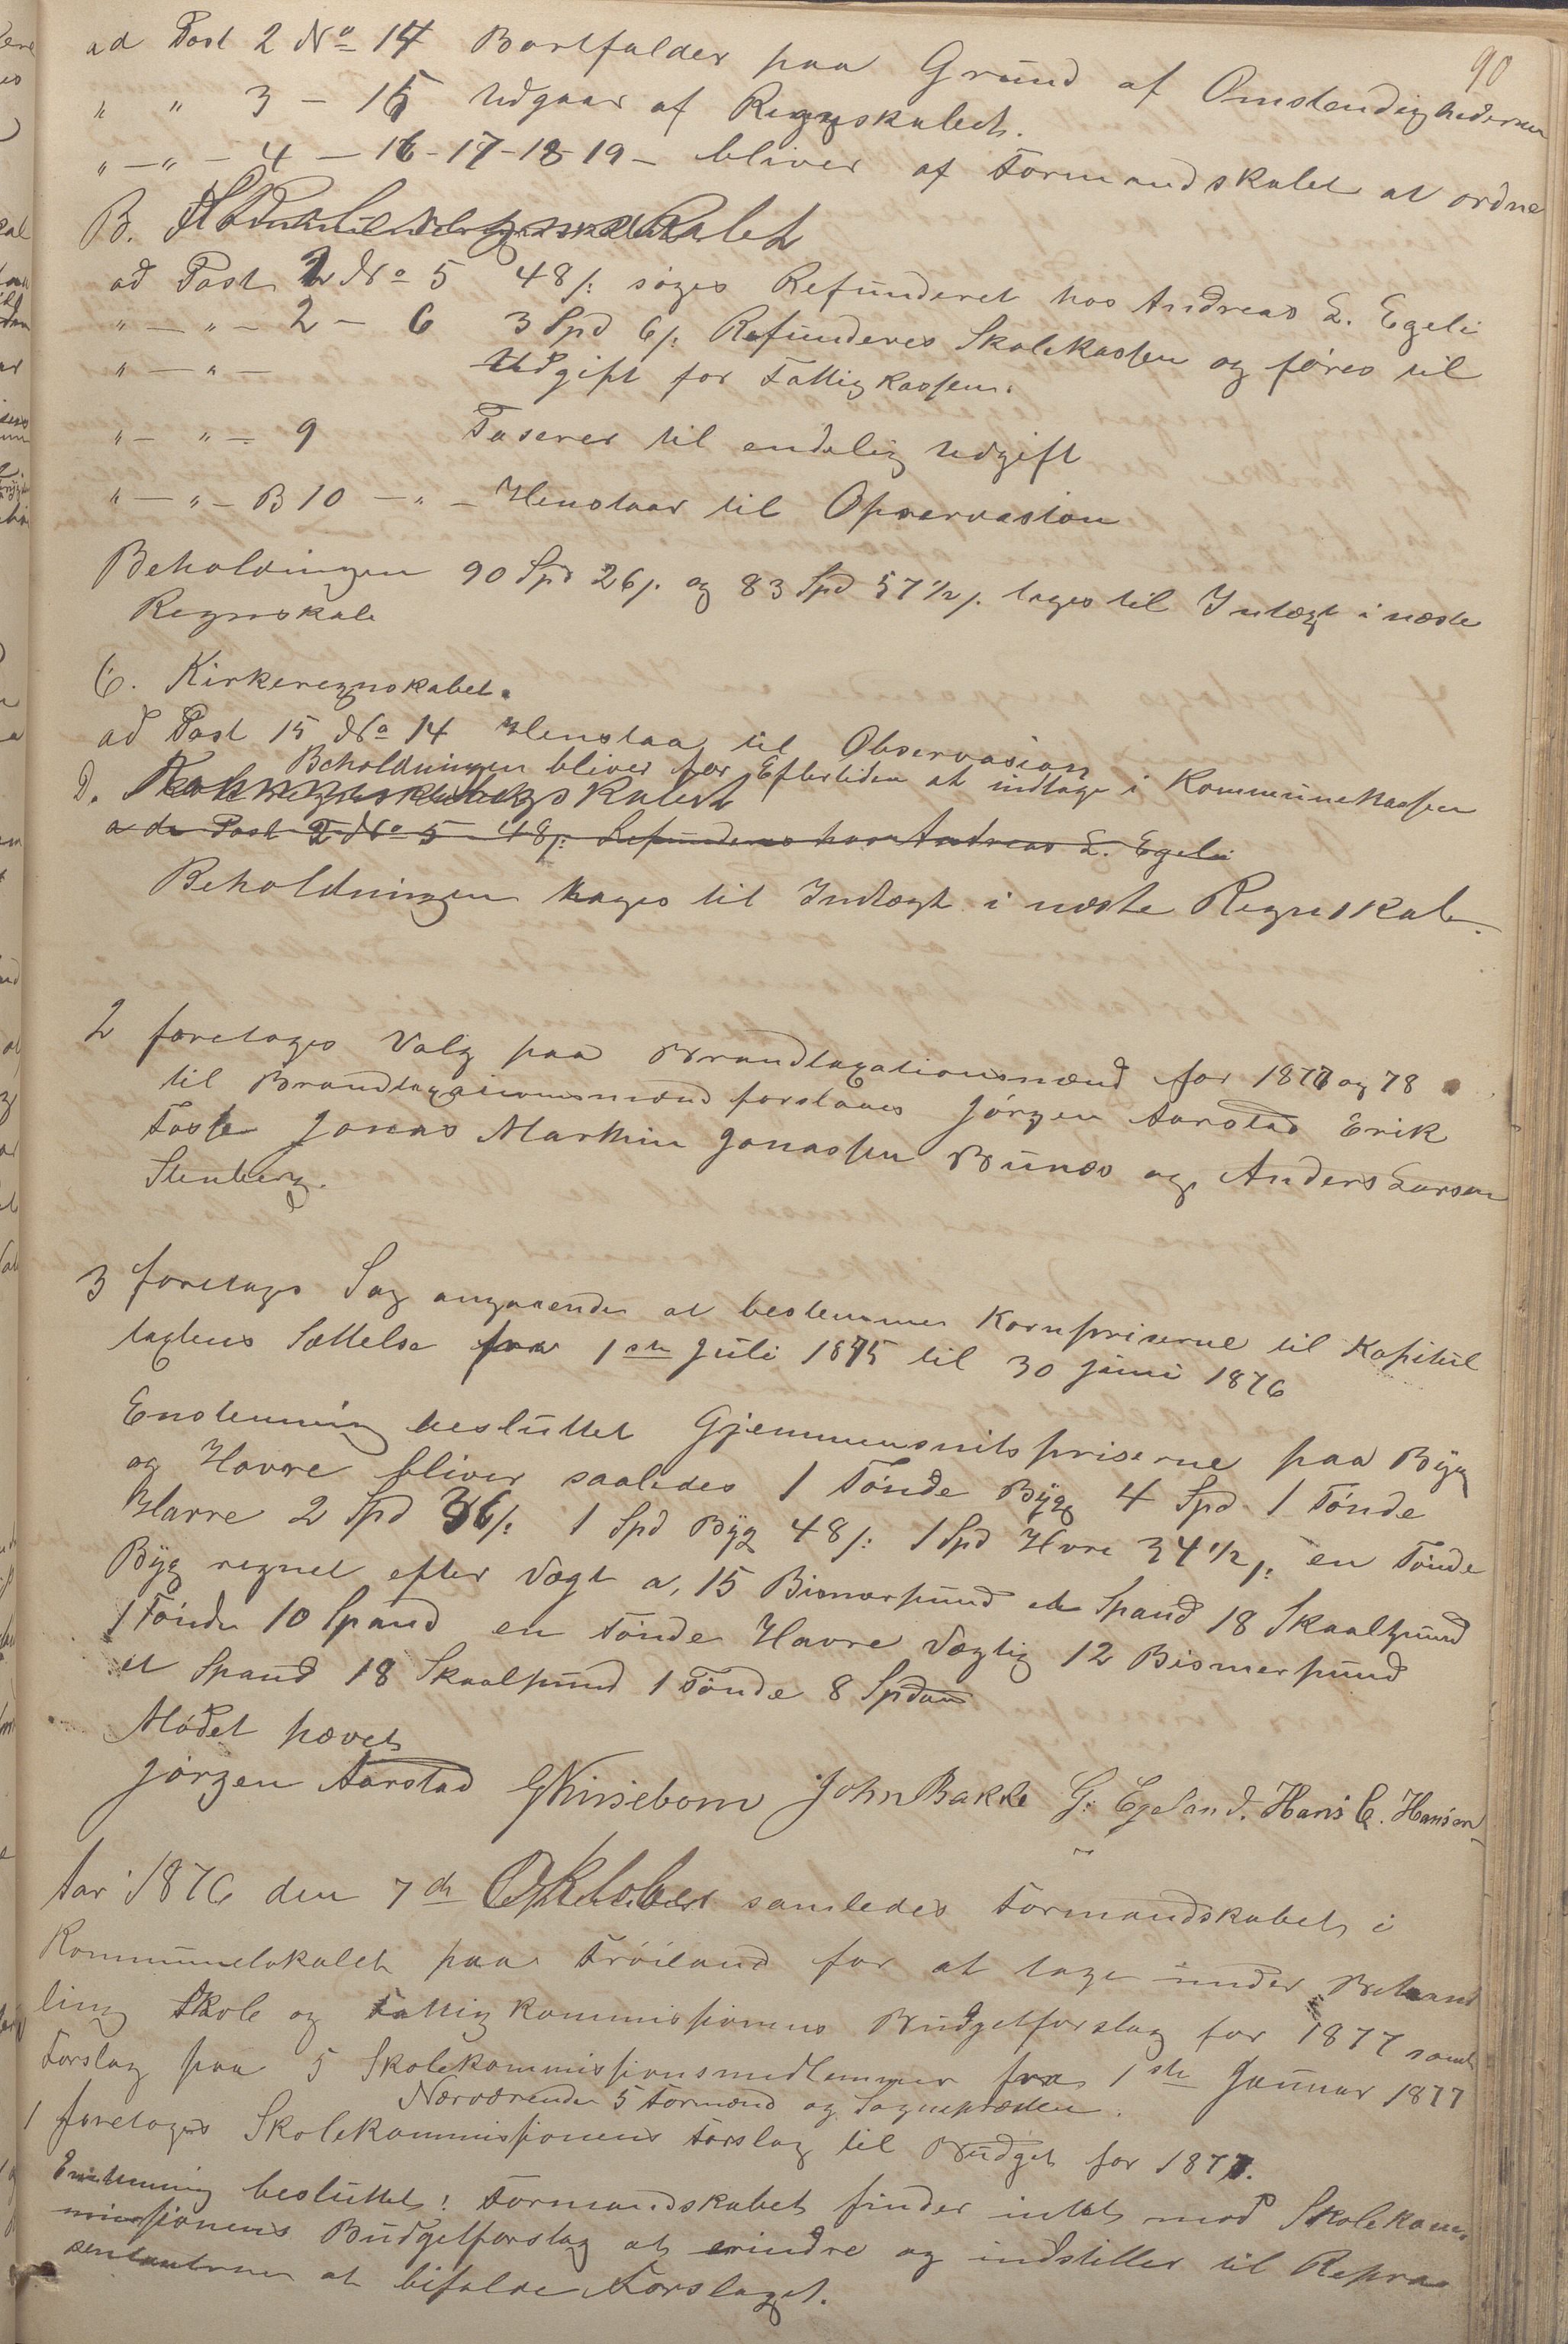 90
ad Post 2 No 14 Bortfalder paa Grund af Omstendighederne
" " 3 – 15 Udgaar af Regnskabet.
" – " – 4 – 16-17-18-19 – bliver af Formandskabet at ordne
B.
ad Post 2 No 5 48 /: søges Refunderet hos Andreas L. Egeli
" – " – 2 – 6 3 Spd 6 /: Refunderes Skolekassen og føres til
" – " – Udgift for Fattigkassen.
" – " – 9 Paseres til endelig Udgift
" – " – B 10 – " – Henstaar til Opservasion
Beholdingen 90 Spd 26 /. og 83 Spd 57 1/2 /. tages til Intægt i næste
Regnskab
C. Kirkeregnskabet.
ad Post 15 No 14 Henstaa til Observasion
Beholdningen bliver for Eftertiden at indtage i Kommunekassen
D.
ad Post 2 No 5 48 /: Refunderes hos Andreas L. Egeli
Beholdningen tages til Indtægt i næste Regnskab.
2 foretages Valg paa Brandtaxationsmænd for 1877 og 78
til Brandtaxasionsmænd forslaaes Jørgen Aarstad Erik
Fosse Jonas Marthin Jonassen Bunæs og Anders Larsen
Stenberg.
3 foretages Sag angaaende at bestemme Kornpriserne til Kapitul
taxtens Sættelse fra 1ste Juli 1875 til 30 juni 1876
Enstemmig besluttet Gjemmensnitspriserne paa Byg
og Havre bliver saaledes 1 Tønde Byg 4 Spd 1 Tønde
Harre 2 Spd 36 /: 1 Spd Byg 48 /: 1 Spd Hvre 34 1/2 /: en Tønde
Byg regnet efter Vægt a, 15 Bismerpund et Spand 18 Skaalpund
1 Tønde 10 Spand en Tønde Havre Vægtig 12 Bismerpund
et Spand 18 Skaalpund 1 Tønde 8 Spdan
Mødet hævet
Jørgen Aarstad John Bakke G. Egeland. Hans C. Hansen
Aar 1876 den 7de Oktober samledes Formandskabet i
Kommunelokalet paa Frøiland for at tage under Behand
ling Skole og Fattigkommissionens Budgetforslag for 1877 samt
Forslag paa 5 Skolekommissionsmedlemmer fra 1ste Januar 1877
Nærværende 5 Formænd og Sognepræsten.
1 foretoges Skolekommissionens Forslag til Budget for 1877.
Enstemmig besluttet: Formandskabet finder intet mod Skolekom-
missionens Budgetforslag at erindre og indstiller til Repræ
sentanterne at bifalde Forslaget.